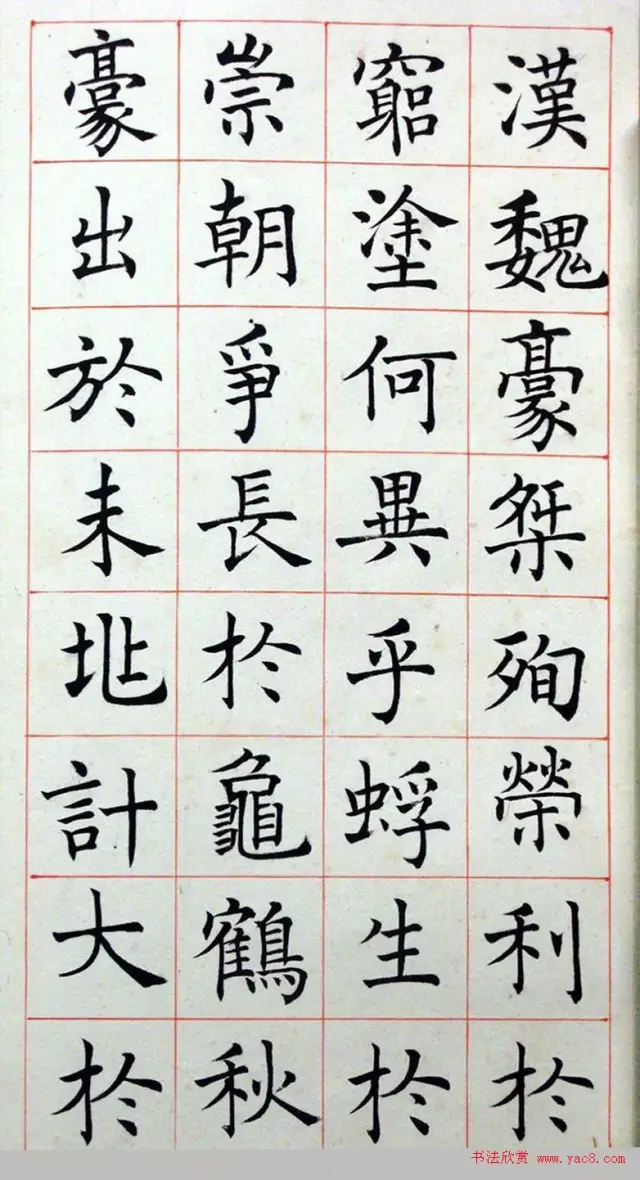 漢魏豪桀殉榮利扵
竆塗何異乎蜉生扵
崇朝爭長扵龜鶴秋
豪出於未計大扵
书法欣赏 www.yac8.com